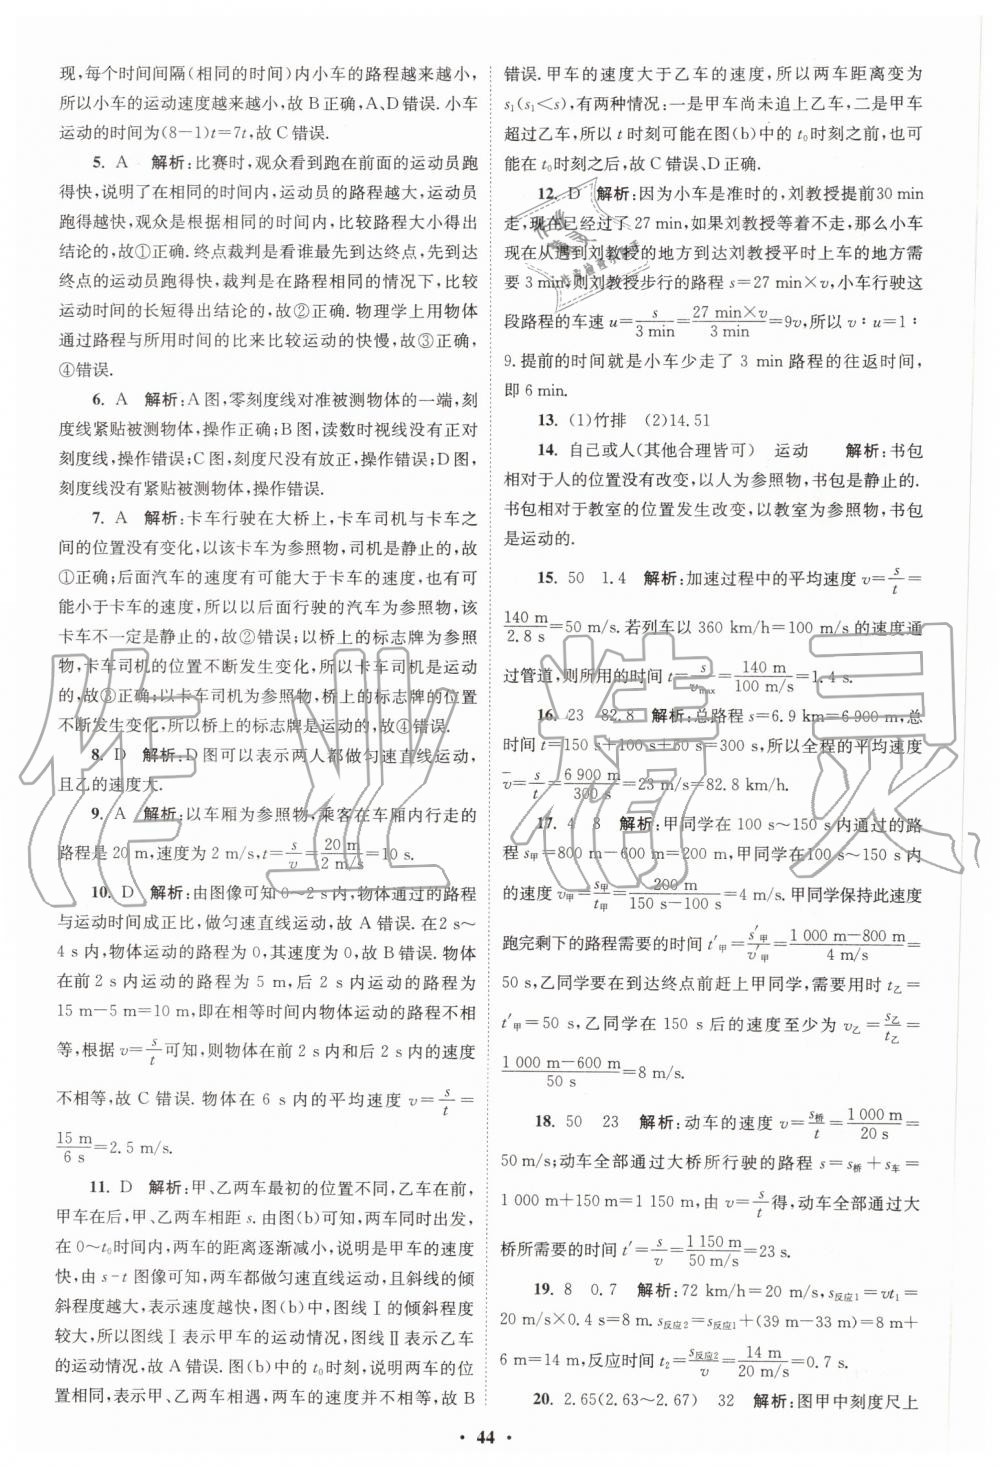 现,每个时间间隔(相同的时间)内小车的路程越来越小,
所以小车的运动速度越来越小,故 B 正确,A、D 错误. 小车
运动的时间为(8−1)t=7t,故 C 错误.
5. A 解析:比赛时,观众看到跑在前面的运动员跑
得快,说明了在相同的时间内,运动员的路程越大,运动员
跑得越快,观众是根据相同的时间内,比较路程大小得出
结论的,故①正确. 终点裁判是看谁最先到达终点,先到达
终点的运动员跑得快,裁判是在路程相同的情况下,比较
运动时间的长短得出结论的,故②正确. 物理学上用物体
通过路程与所用时间的比来比较运动的快慢,故③正确,
④错误.
6. A 解析:A 图,零刻度线对准被测物体的一端,刻
度线紧贴被测物体,操作正确;B 图,读数时视线没有正对
刻度线,操作错误;C 图,刻度尺没有放正,操作错误;D 图,
刻度线没有紧贴被测物体,操作错误.
7. A 解析:卡车行驶在大桥上,卡车司机与卡车之
间的位置没有变化,以该卡车为参照物,司机是静止的,故
①正确;后面汽车的速度有可能大于卡车的速度,也有可
能小于卡车的速度,所以以后面行驶的汽车为参照物,该
卡车不一定是静止的,故②错误;以桥上的标志牌为参照
物,卡车司机的位置不断发生变化,所以卡车司机是运动
的,故③正确;以卡车司机为参照物,桥上的标志牌的位置
不断发生变化,所以桥上的标志牌是运动的,故④错误.
8. D 解析:D 图可以表示两人都做匀速直线运动,
且乙的速度大.
9. A 解析:以车厢为参照物,乘客在车厢内行走的
路程是 20 m,速度为 2 m/s,t=s/v=20 m/2 m/s=10 s.
10. D 解析:由图像可知 0~2 s 内,物体通过的路程
与运动时间成正比,做匀速直线运动,故 A 错误. 在2 s~
4 s 内,物体运动的路程为 0,其速度为 0,故 B 错误. 物体
在前 2 s 内运动的路程为 5 m,后 2 s 内运动的路程为
15 m−5 m=10 m,即在相等时间内物体运动的路程不相
等,根据 v=s/t可知,则物体在前 2 s 内和后 2 s 内的速度
不相等,故 C 错误. 物体在 6 s 内的平均速度 v=s/t=
15 m/6 s=2.5 m/s.
11. D 解析:甲、乙两车最初的位置不同,乙车在前,
甲车在后,甲、乙两车相距 s. 由图(b)可知,两车同时出发,
在 0~t₀时间内,两车的距离逐渐减小,说明是甲车的速度
快,由 s-t 图像可知,两车都做匀速直线运动,且斜线的倾
斜程度越大,表示速度越快,图(b)中,图线Ⅰ的倾斜程度
较大,所以图线Ⅰ表示甲车的运动情况,图线Ⅱ表示乙车
的运动情况,故 A 错误. 图(b)中的 t₀时刻,说明两车的位
置相同,表示甲、乙两车相遇,两车的速度并不相等,故 B
错误. 甲车的速度大于乙车的速度,所以两车距离变为
s₁(s₁<s),有两种情况:一是甲车尚未追上乙车,二是甲车
超过乙车,所以 t 时刻可能在图(b)中的 t₀时刻之前,也可
能在 t₀时刻之后,故 C 错误、D 正确.
12. D 解析:因为小车是准时的,刘教授提前30 min
走,现在已经过了 27 min,如果刘教授等着不走,那么小车
现在从遇到刘教授的地方到达刘教授平时上车的地方需
要 3 min,则刘教授步行的路程 s=27 min×v,小车行驶这
段路程的车速 u=s/3 min=27 min×v/3 min=9v,所以 v∶u=1∶
9. 提前的时间就是小车少走了 3 min 路程的往返时间,
即 6 min.
13. (1)竹排 (2)14.51
14. 自己或人(其他合理皆可) 运动 解析:书包
相对于人的位置没有改变,以人为参照物,书包是静止的.
书包相对于教室的位置发生改变,以教室为参照物,书包
是运动的.
15. 50 1.4 解析:加速过程中的平均速度 v=s/t=
140 m/2.8 s=50 m/s. 若列车以 360 km/h=100 m/s 的速度通
过管道,则所用的时间 t=s/vmax=140 m/100 m/s=1.4 s.
16. 23 82.8 解析:总路程 s=6.9 km=6 900 m,总
时间 t=150 s+100 s+50 s=300 s,所以全程的平均速度
v=s/t=6 900 m/300 s=23 m/s=82.8 km/h.
17. 4 8 解析:甲同学在 100 s~150 s 内通过的路
程 s甲=800 m−600 m=200 m,甲同学在100 s~150 s 内
的速度 v甲=s甲/t甲=200 m/150 s−100 s=4 m/s. 甲同学保持此速度
跑完剩下的路程需要的时间 t′甲=s′甲/v′甲=1 000 m−800 m/4 m/s=
50 s,乙同学要在到达终点前赶上甲同学,需要用时 t乙=
t′甲=50 s,乙同学在 150 s 后的速度至少为 v乙=s乙/t乙=
1 000 m−600 m/50 s=8 m/s.
18. 50 23 解析:动车的速度 v=s桥/t=1 000 m/20 s=
50 m/s;动车全部通过大桥所行驶的路程 s=s桥+s车=
1 000 m+150 m=1 150 m,由 v=s/t得,动车全部通过大
桥所需要的时间 t′=s/v=1 150 m/50 m/s=23 s.
19. 8 0.7 解析:72 km/h=20 m/s,s反应1=vt₁=
20 m/s×0.4 s=8 m. s反应2=s反应1+(39 m−33 m)=8 m+
6 m=14 m,反应时间 t₂=s反应2/v=14 m/20 m/s=0.7 s.
20. 2.65(2.63~2.67) 32 解析:图甲中刻度尺上
• 44 •
作业精灵